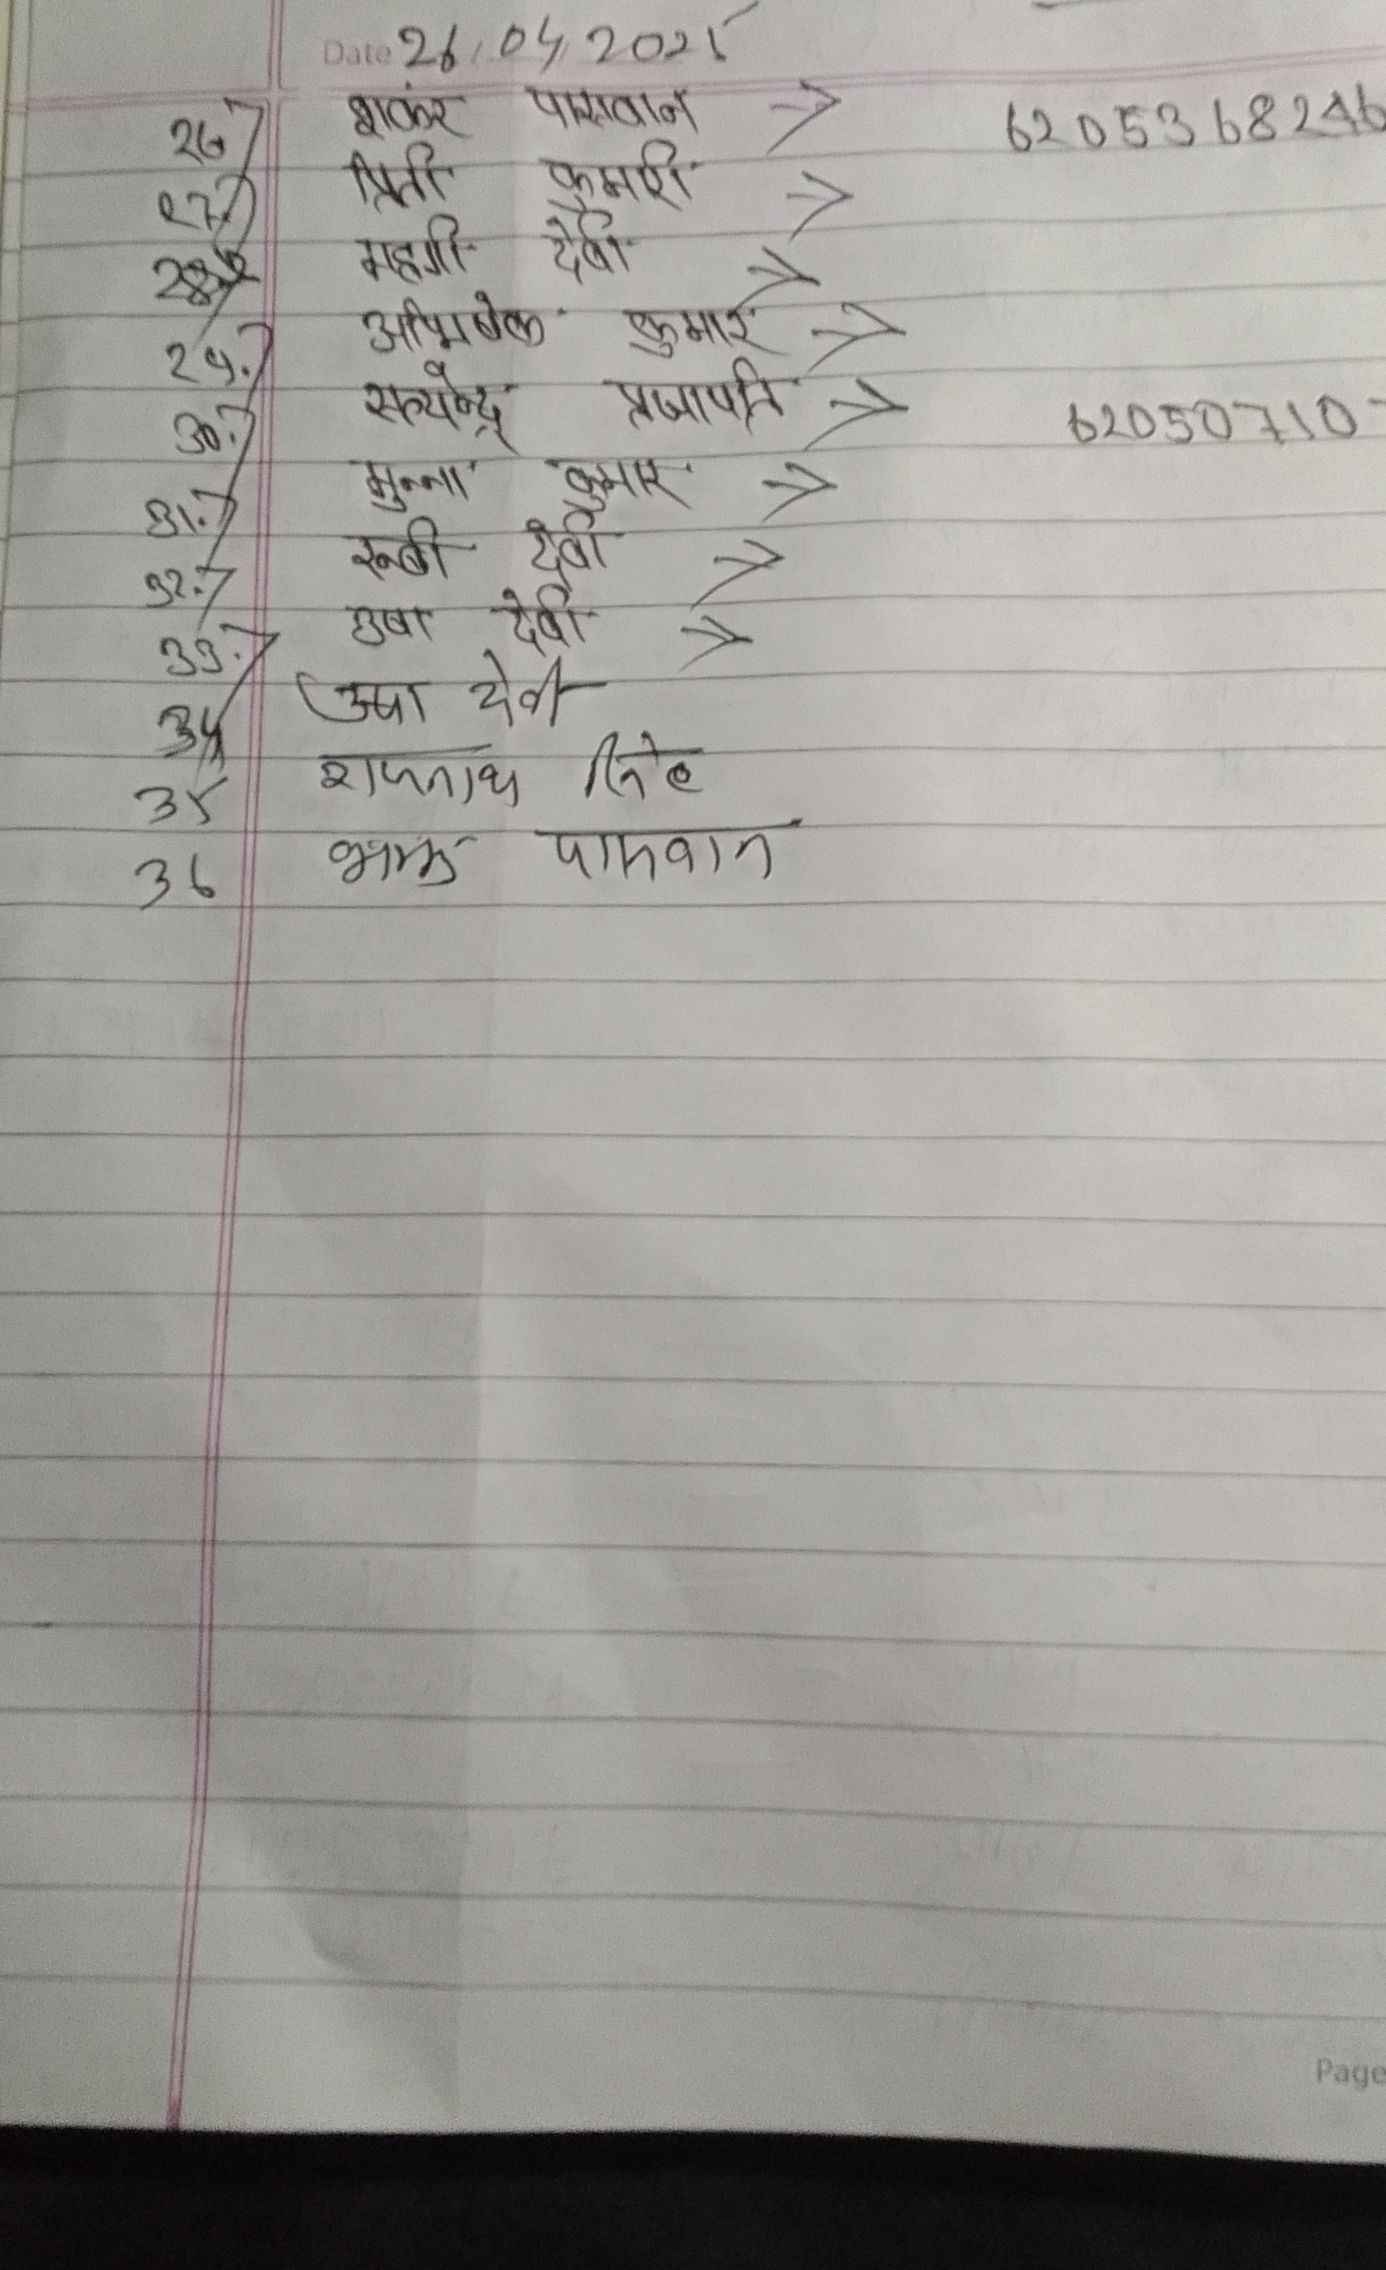 Date 26/04/2025
26 शकंर पासवान → 6205368246
27 प्रिती कुमारी →
28 देवी →
29. अभिषेक कुमार →
30. सत्येन्द्र प्रजापति → 62050710
31. मुन्ना कुमार →
32. रूबी देवी →
33. उषा देवी →
34 उषा देवी
35 राजनाथ सिंह
36 पासवान
Page